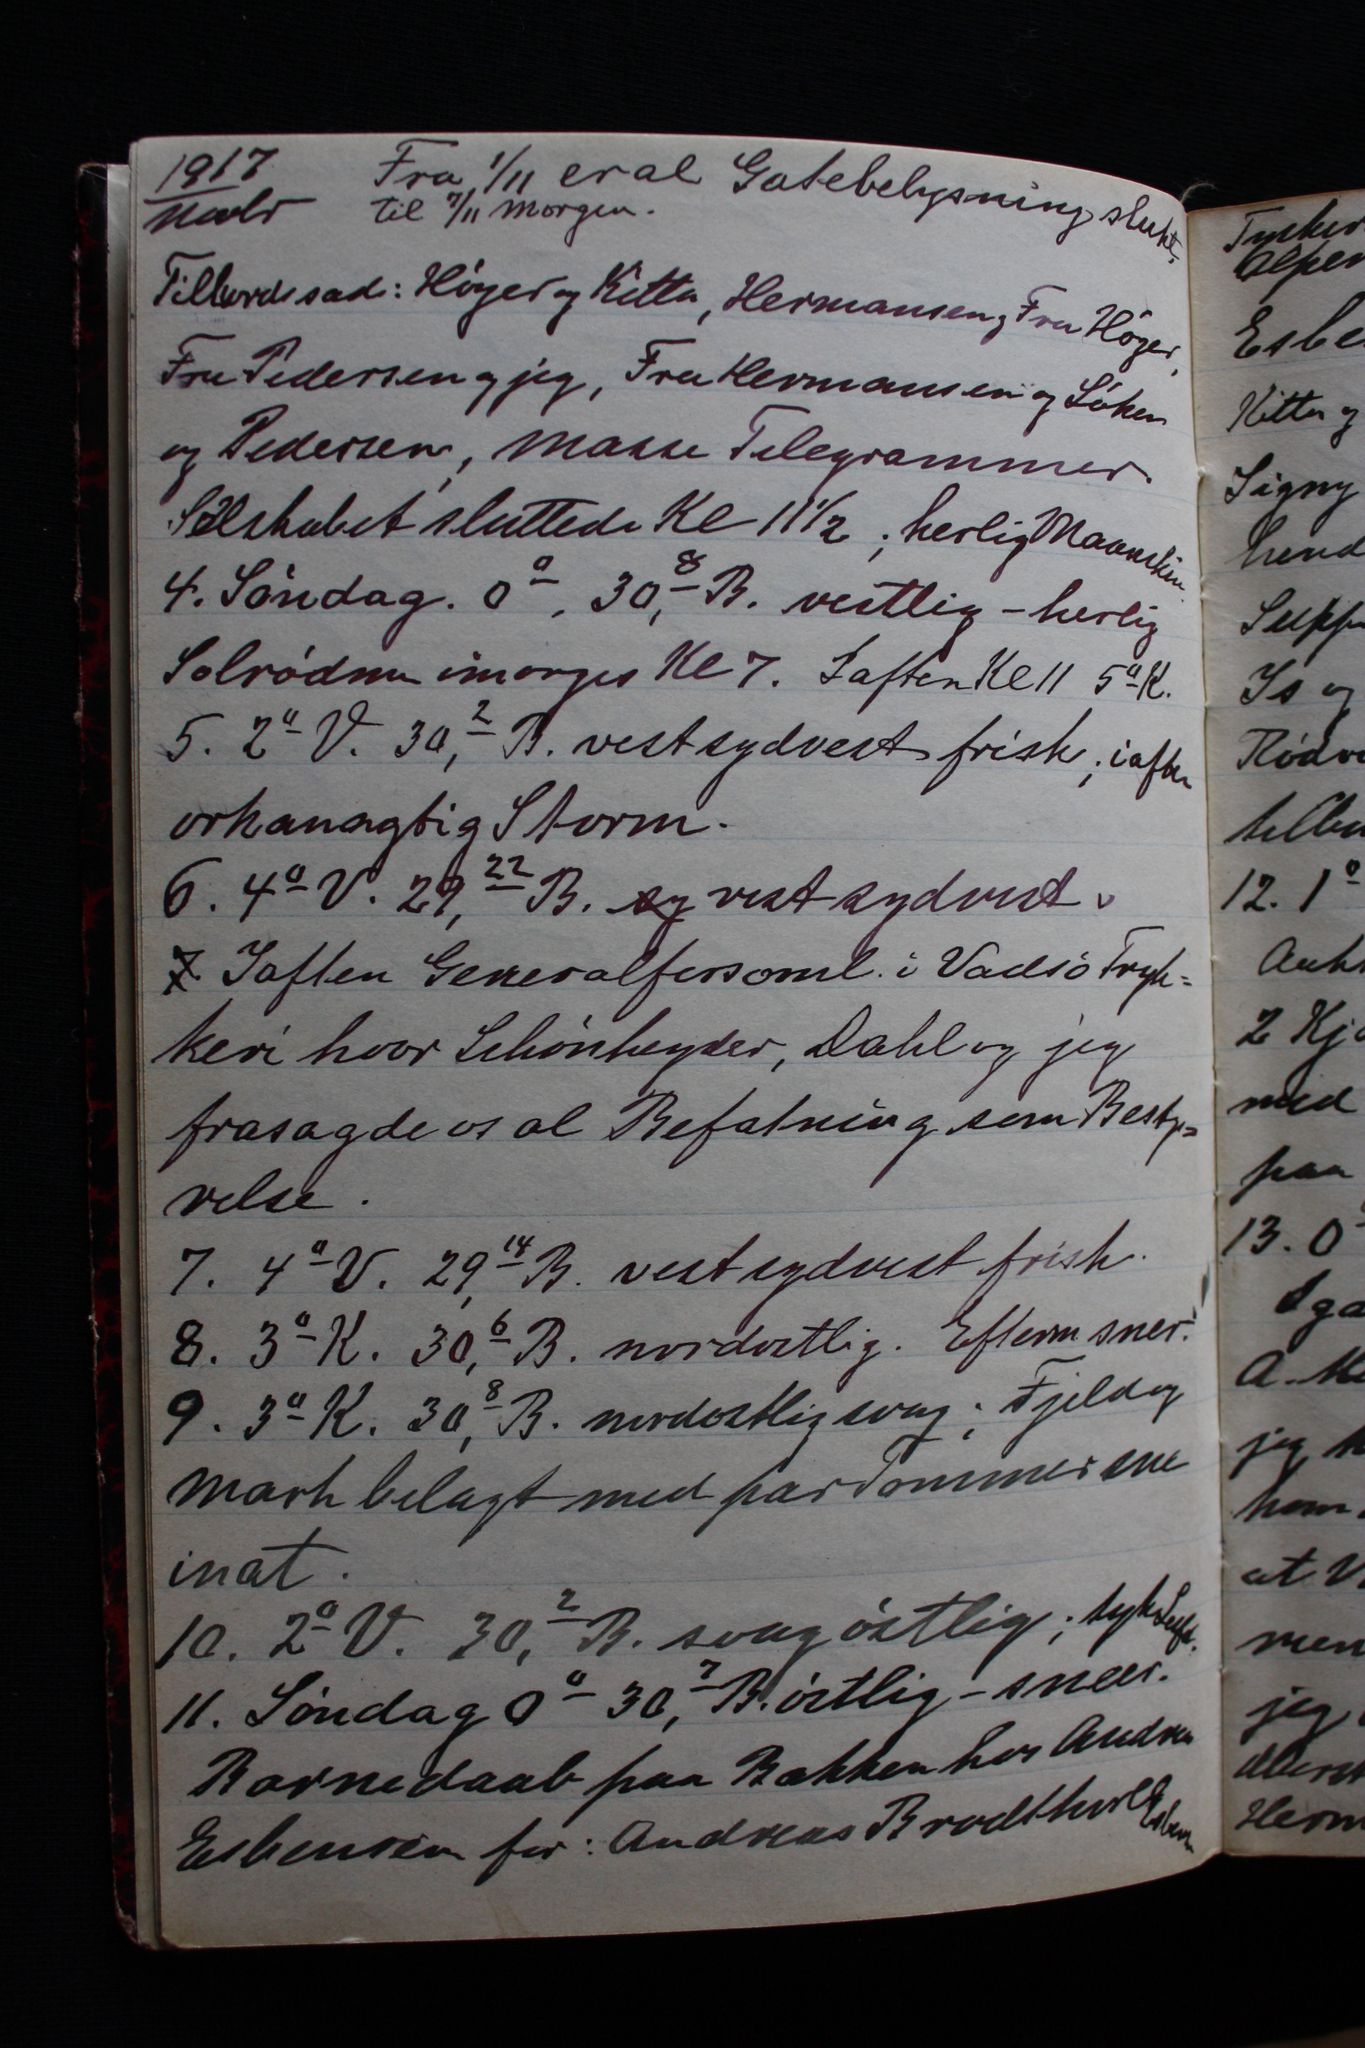 1917 Fra 1/11 er al Gatebelysning slukt,
Novbr til 7/11 Morgen.
Tilbordssad: Höyer og Kitta, Hermansen og Fru Höyer,
Fru Pedersen og jeg, Fru Hermansen og Söken
og Pedersen, Masse Telegrammer.
Selskabet sluttede Kl 11 1/2, herlig Maaneskin.
4. Söndag. 0°, 30,8 B. vestlig - herlig
Solrödme imorges Kl 7. Iaften Kl 11 5° K.
5. 2° V. 30,2 B. vestsydvest frisk; iaften
orkanagtig Storm.
6. 4° V. 29,22 B. sy vestsydvest.
7 Iaften Generalforsaml. i Vadsö Tryk=
keri hvor Schönheyder, Dahl og jeg
frasagde os al Befatning som Besty=
relse.
7. 4° V. 29,14 B. vestsydvest frisk.
8. 3° K. 30,6 B. nordostlig. Efterm sner.
9. 3° K. 30,8 B. nordostlig svag; Fjeld og
Mark belagt med par Tommer sne
inat.
10. 2° V. 30,2 B. svag östlig; tyk Luft.
11. Söndag 0° 30,7 B. östlig - sneer.
Barnedaab paa Bakken hos Andreas
Esbensen for: Andreas Brodtkorb Esbensen
Tysker
Alpen
Esbe
Kitta og
Signy
hend
Supp
Is og
Rödvi
tilbo
12. 1°
2 Kj
med
paa
13. 0°
jeg h
ham
at V
men
jeg
Herm